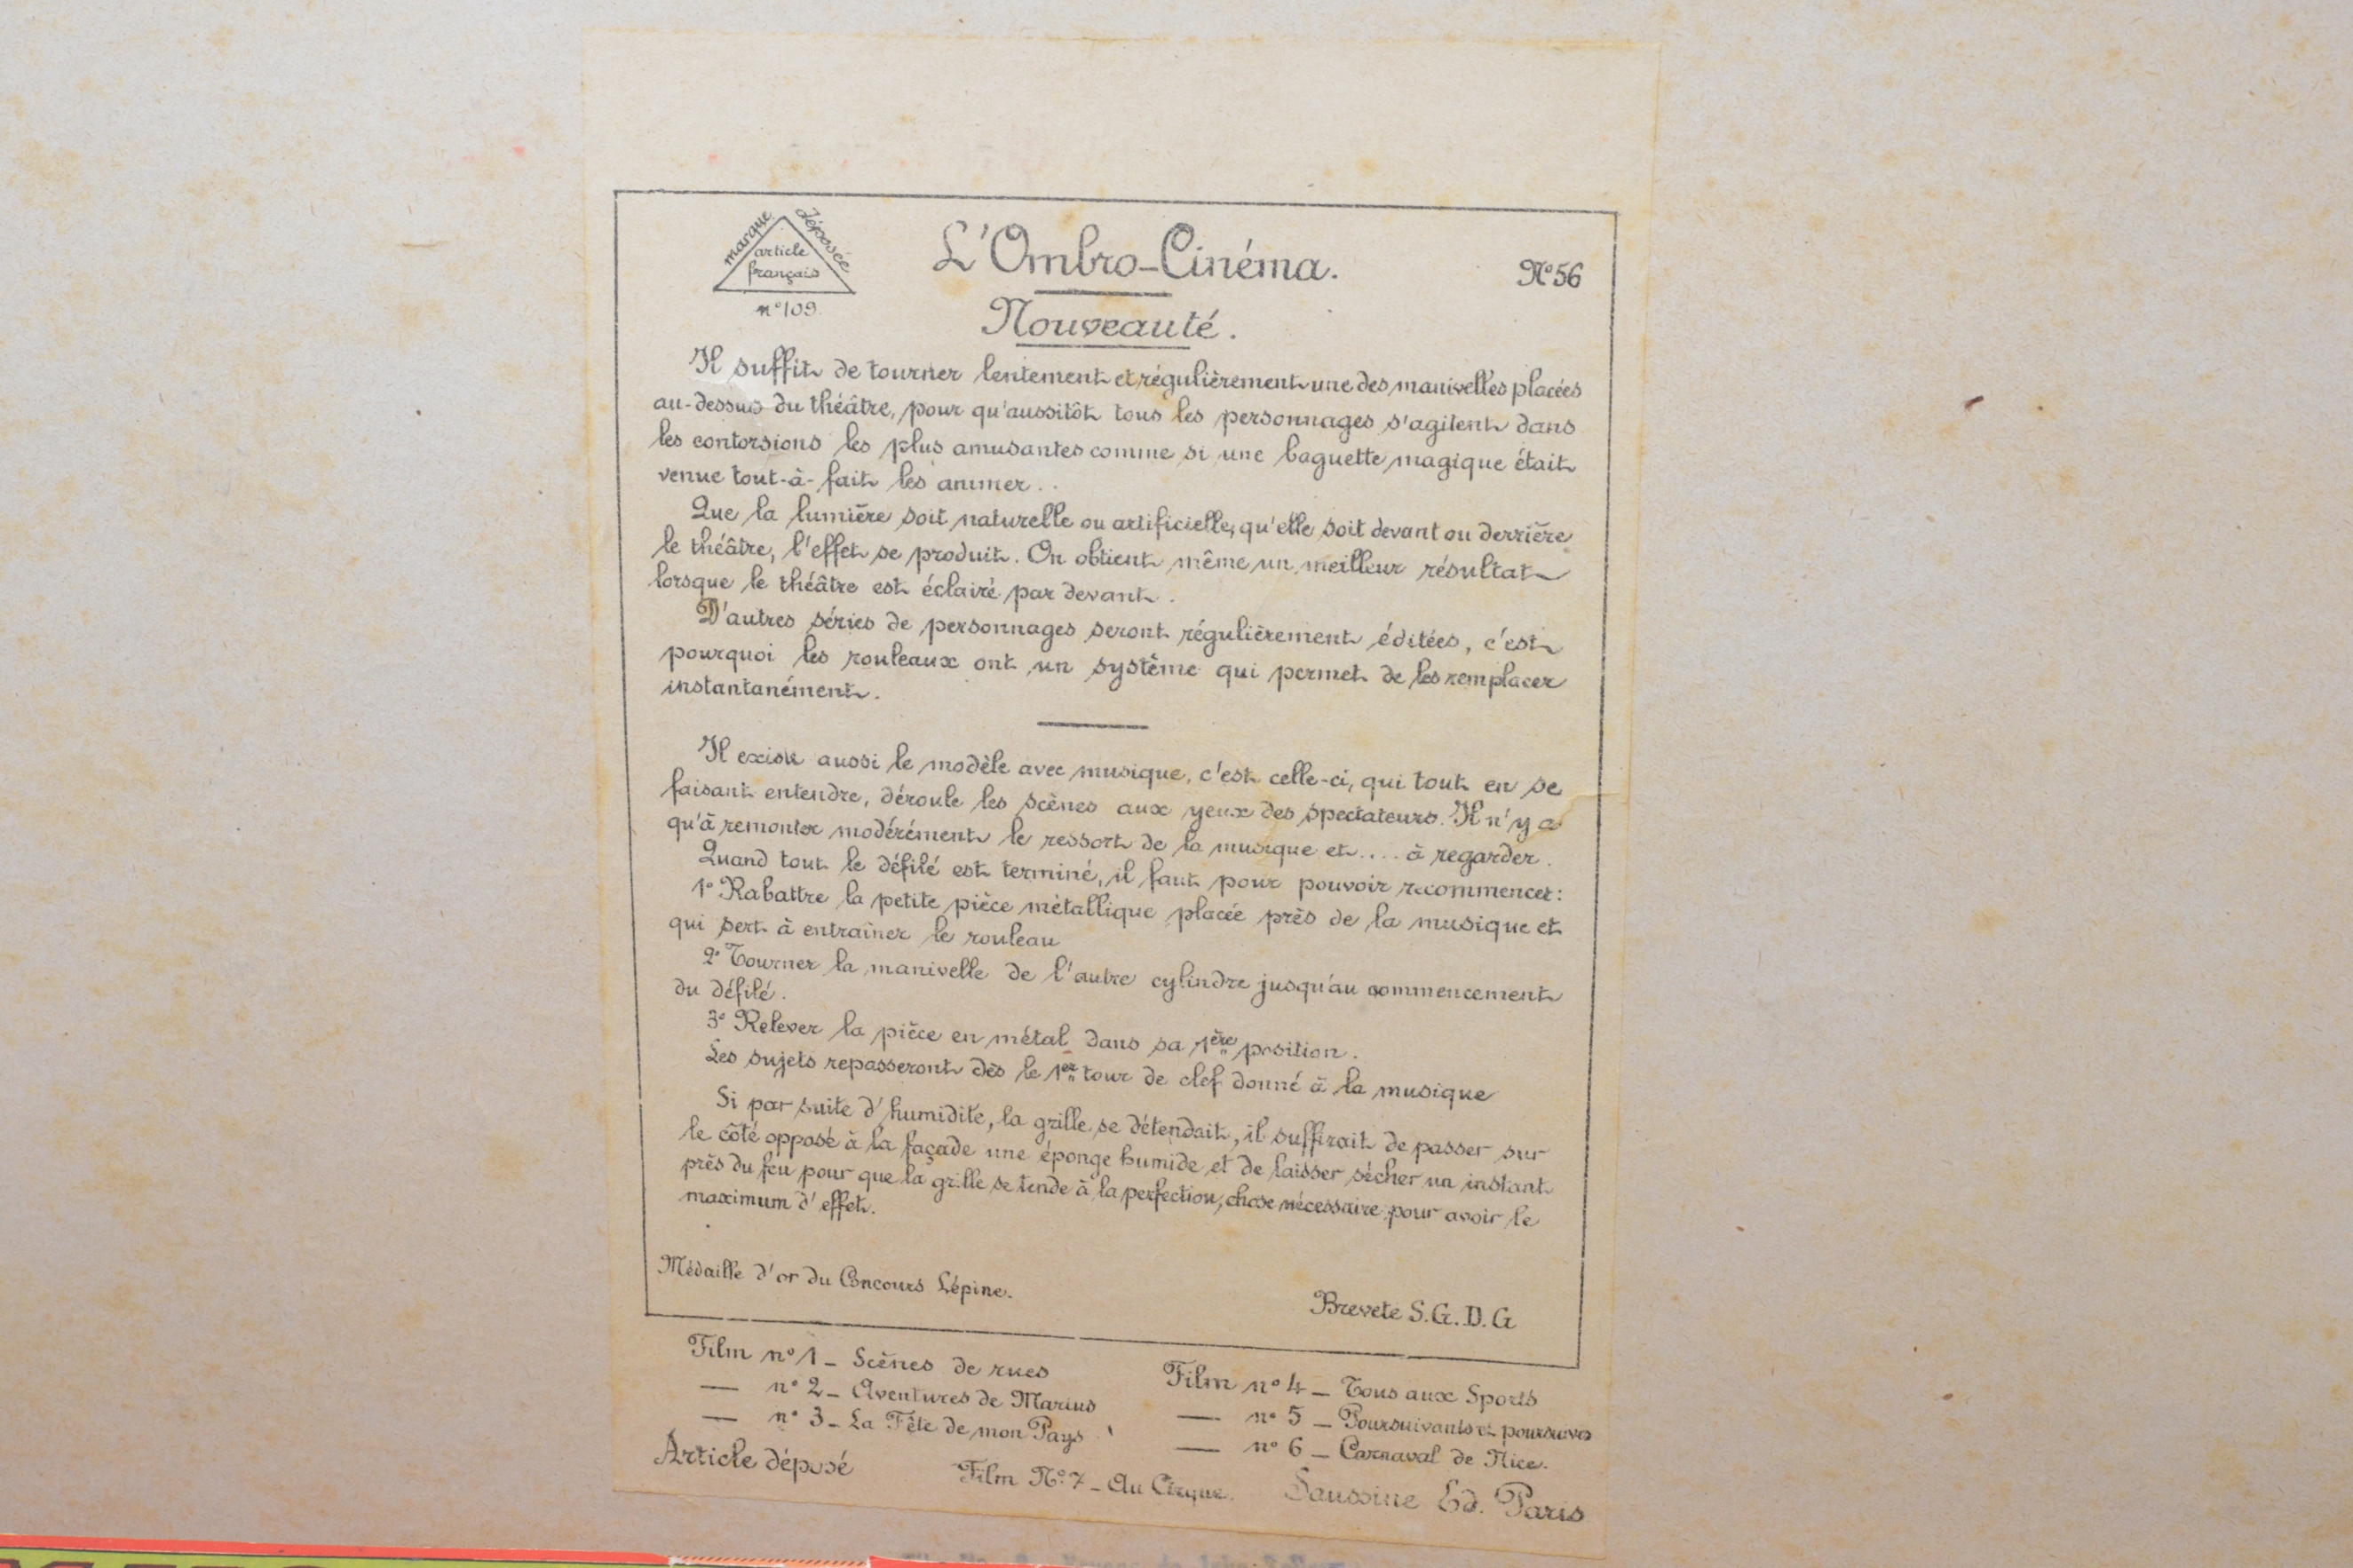 marque déposée
article
français
n°109.
L'Ombro-Cinéma.
N°56
Nouveauté.
Il suffit de tourner lentement et régulièrement une des manivelles placées
au-dessus du théâtre, pour qu'aussitôt tous les personnages s'agitent dans
les contorsions les plus amusantes comme si une baguette magique était
venue tout-à-fait les animer..
Que la lumière soit naturelle ou artificielle, qu'elle soit devant ou derrière
le théâtre, l'effet se produit. On obtient même un meilleur résultat
lorsque le théâtre est éclairé par devant.
D'autres séries de personnages seront régulièrement éditées, c'est
pourquoi les rouleaux ont un système qui permet de les remplacer
instantanément.
Il existe aussi le modèle avec musique, c'est celle-ci, qui tout en se
faisant entendre, déroule les scènes aux yeux des spectateurs. Il n'y a
qu'à remonter modérément le ressort de la musique et.... à regarder.
Quand tout le défilé est terminé, il faut pour pouvoir recommencer:
1° Rabattre la petite pièce métallique placée près de la musique et
qui sert à entraîner le rouleau
2° Tourner la manivelle de l'autre cylindre jusqu'au commencement
du défilé.
3° Relever la pièce en métal dans sa 1ère position.
Les sujets repasseront dès le 1er tour de clef donné à la musique
Si par suite d'humidité, la grille se détendait, il suffirait de passer sur
le côté opposé à la façade une éponge humide et de laisser sécher un instant
près du feu pour que la grille se tende à la perfection, chose nécessaire pour avoir le
maximum d'effet.
Médaille d'or du Concours Lépine.
Breveté S.G.D.G
Film n°1 _ Scènes de rues
— n° 2 _ Aventures de Marius
— n° 3 _ La Fête de mon Pays
Film n° 4 _ Tous aux Sports
— n° 5 _ Poursuivants et poursuivis
— n° 6 _ Carnaval de Nice.
Article déposé
Film N° 7 _ Au Cirque.
Saussine Ed. Paris